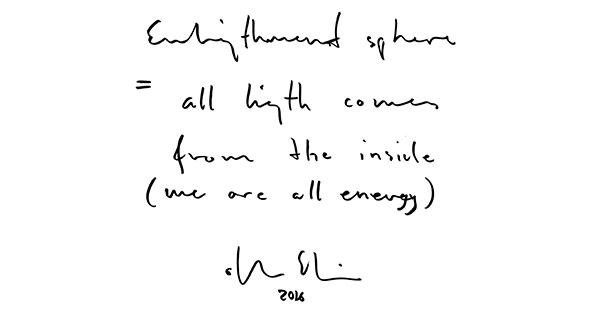 Enligthment sphere
=
all ligth comes
from the inside
(we are all energy)
2016